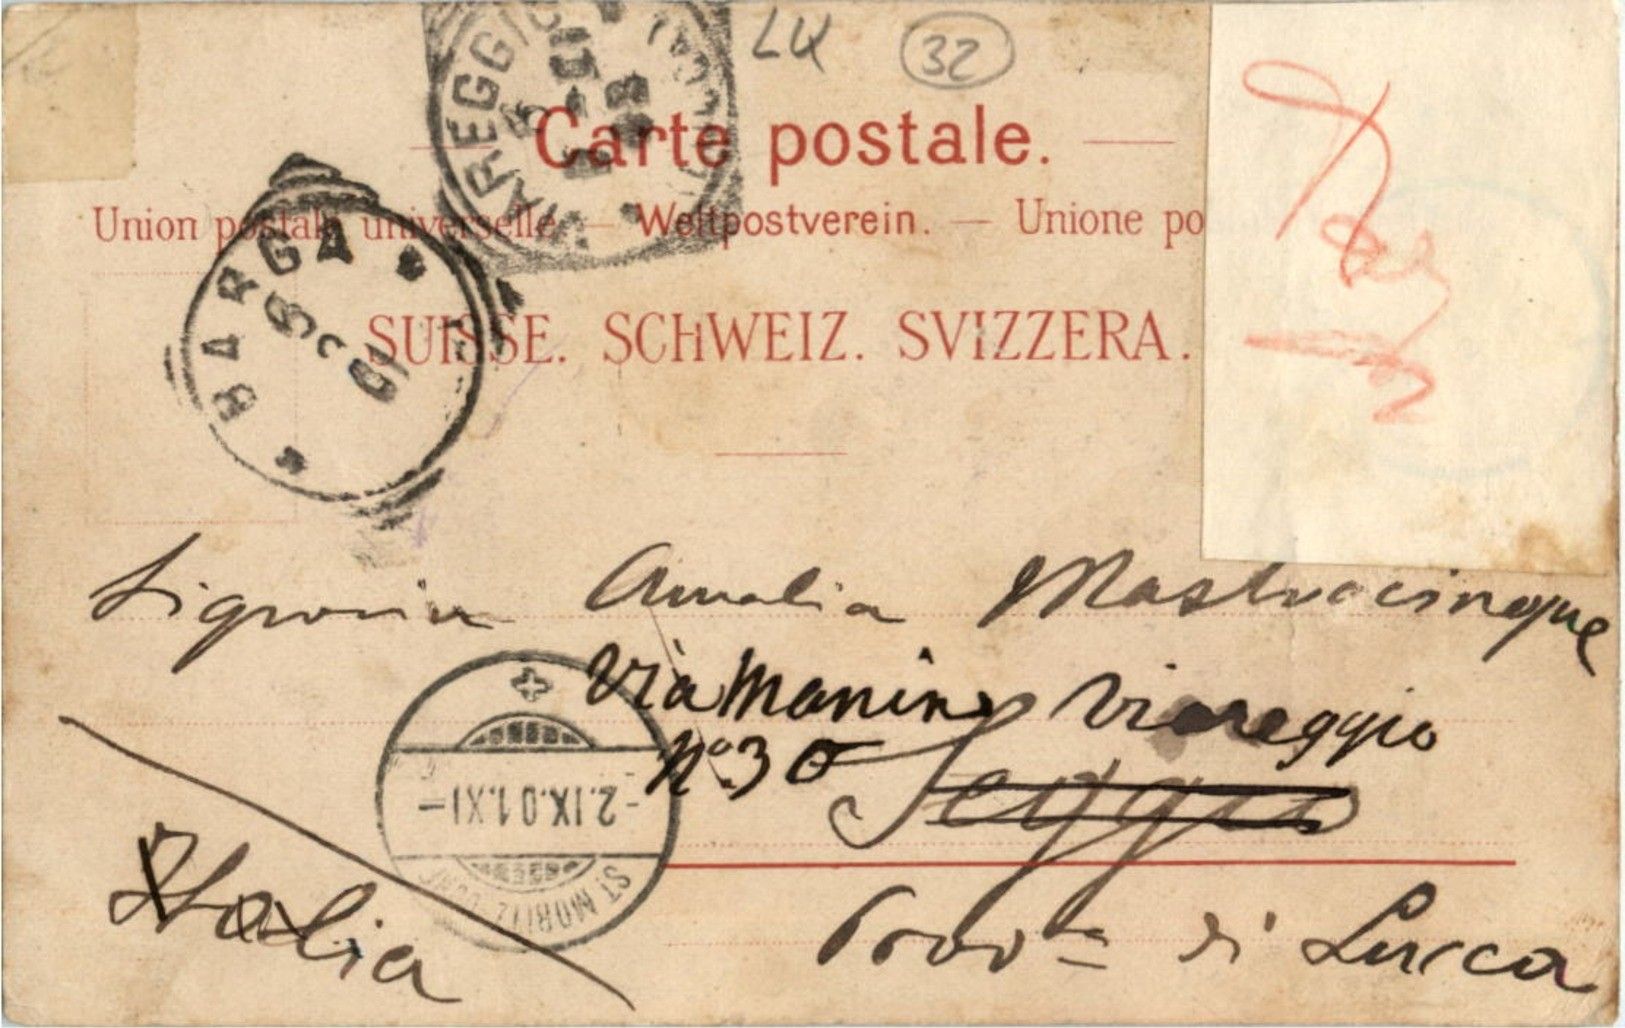 LU 32
Carte postale.
Union postale universelle. — Weltpostverein. — Unione po
SUISSE. SCHWEIZ. SVIZZERA.
BARGA
Signorina Amalia Mastrocinque
Via Manin Viareggio
No 30
Seggio
Provᵃ di Lucca
Italia
-2.IX.01.XI-
ST. MORITZ